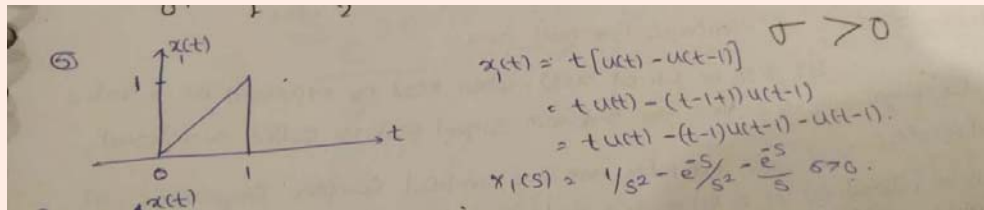 0 1 2
⑤ x₁(t)
1
0 1 t
x₁(t) = t[u(t) - u(t-1)] σ > 0
= t u(t) - (t-1+1) u(t-1)
= t u(t) - (t-1) u(t-1) - u(t-1).
x₁(s) = 1/s² - e^-s/s² - e^-s/s σ>0.
x(t)